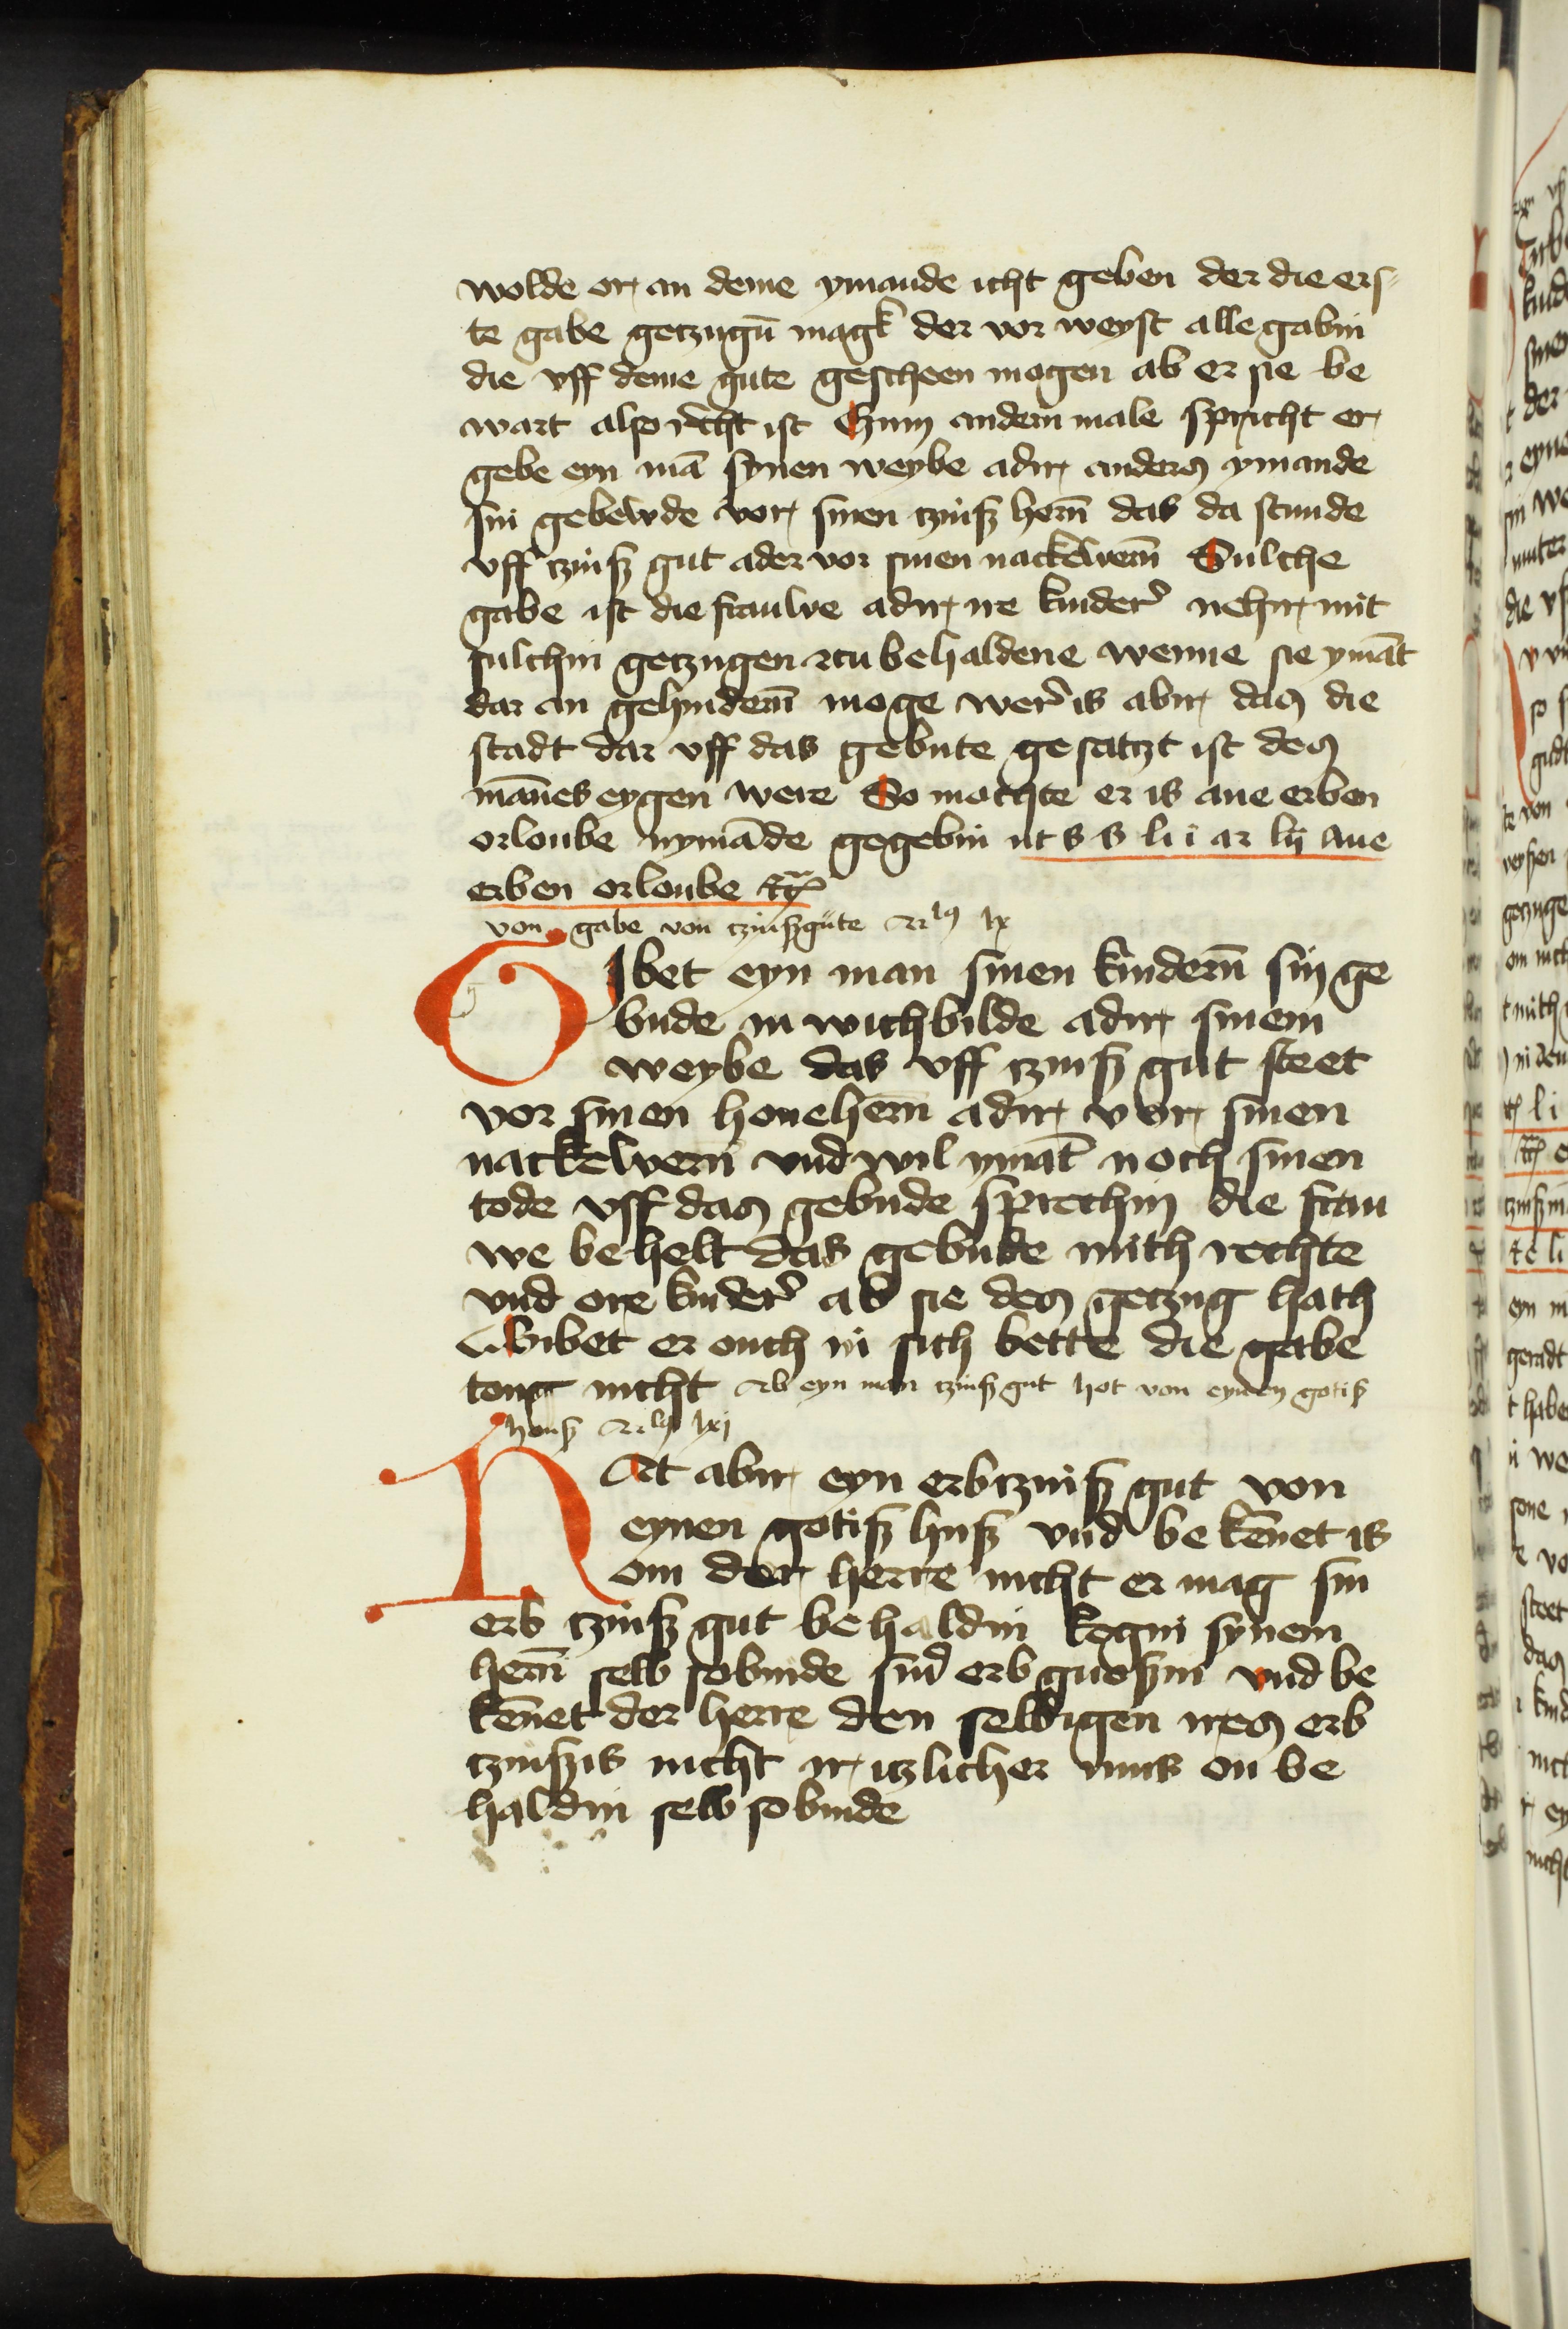 wolde er an deme ymande icht geben der die ers-
te gabe getzugū magk der vor weyst alle gabin
die vff deme gute gescheen mogen ab er sie be
wart also recht ist Czum andern male spricht er
gebe eyn mā synen weybe adir anders ymande
sin gebewde vor sinen tzinß hern̄ das da stunde
vff tzinß gut ader vor sinen nackewern̄ Sulche
gabe ist die frauwe adir ire kinder nehir mit
sulchin getzugen zcu behaldene wenne sie ymāt
dar an gehindern̄ moge wer is abir das die
stadt dar vff das gebute gesatzt ist des
mān̄es eygen were So mochte er is ane erben
orloube nymāde gegebin ut s s li i ar lij Ane
erben orloube etc
von gabe von tzinßgute Arlus lx
Gibet eyn man sinen kindern̄ sin ge
bude in wichbilde adir sinem
weybe das vff tzinß gut steet
vor sinen houehern̄ adir vor sinen
nackewern̄ vnd wil ymāt noch sinen
tode vff das gebude sprechin die frau
we behelt das gebude mith rechte
vnd ore kinder ab sie des getzug hath
Gibet er ouch in sich bette die gabe
toug nicht Ab eyn man tzinß gut hot von eynen gotiß
houß Arlus lxj
Hat abir eyn erbtzinß gut von
eynen gotiß huß vnd bekēnet is
om der herre nicht er mag sin
erb tzinß gut behaldin kegin synem
hern̄ selb sobinde sind erb gnoßin vnd be
kēnet der herre den selbigen ires erb
tzinßis nicht ir itzlicher mus on be
haldin selb sobinde